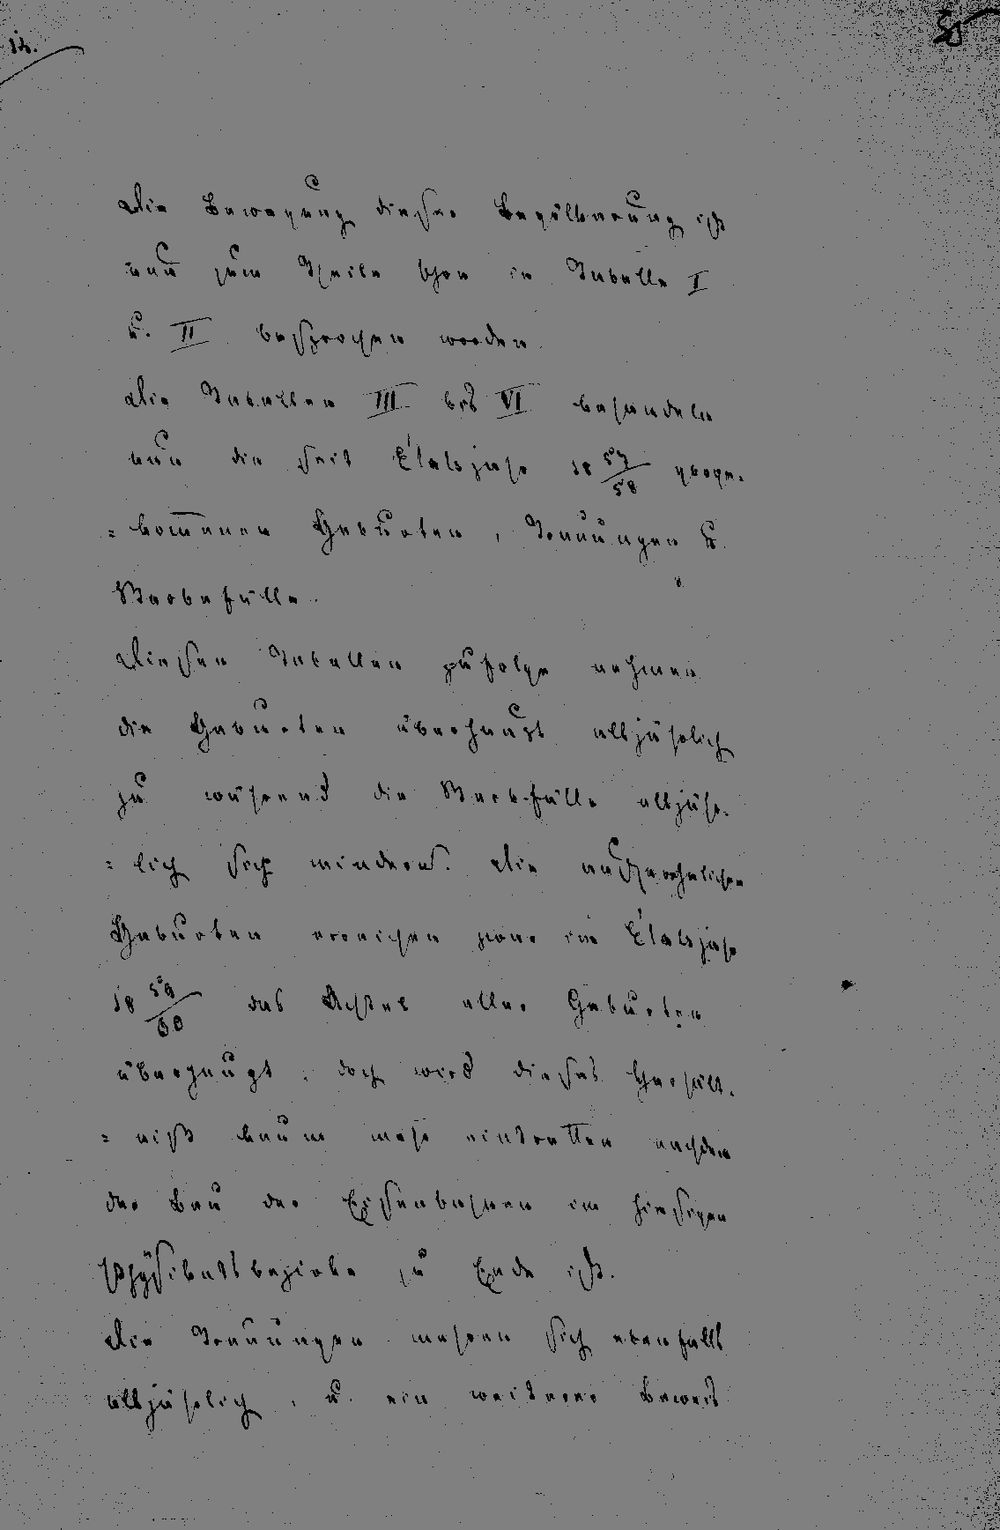 Die Bewegung dieser Bevölkerung ist
nun zum Theile schon in Tabelle I
u. II besprochen worden.
Die Tabellen III bis VI behandeln
nun die seit Etatsjahr 18 57/58 vorge-
= kommenen Geburten, Trauungen u.
Sterbefälle.
Diesen Tabellen zufolge nehmen
die Geburten überhaupt alljährlich
zu während die Sterbefälle alljähr-
= lich sich mindern. Die außerehelichen
Geburten erreichen zwar im Etatsjahr
18 59/60 das Achtel aller Geburten
überhaupt, doch wird dieses Verhält-
= niß kaum mehr eintretten nachdem
der Bau der Eisenbahnen im hiesigen
Physikatsbezirke zu Ende ist.
Die Trauungen mehren sich ebenfalls
alljährlich, u. ein weiterer Beweis